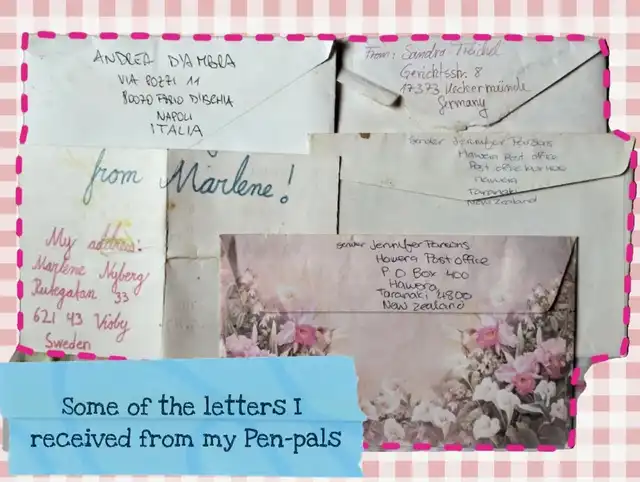 ANDREA D'AMBRA
VIA POZZI 11
80070 FORIO D'ISCHIA
NAPOLI
ITALIA
From: Sandra Teichel
Gerichtsstr. 8
17373 Ueckermünde
Germany
Sender Jennifer Parsons
Hawera Post office
Post office
Hawera
Taranaki
New Zealand
from Marlene!
My address:
Marlene Nyberg
Rutegatan 33
621 43 Visby
Sweden
sender Jennifer Parsons
Hawera Post office
P O Box 400
Hawera
Taranaki 4800
New Zealand
Some of the letters I
received from my Pen-pals